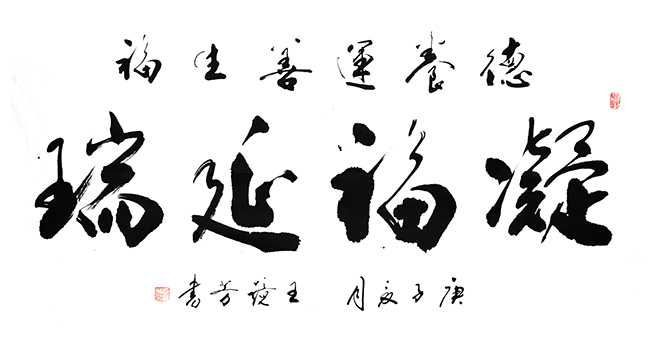 德養運善生福
凝福延瑞
庚子夏月 王芳書